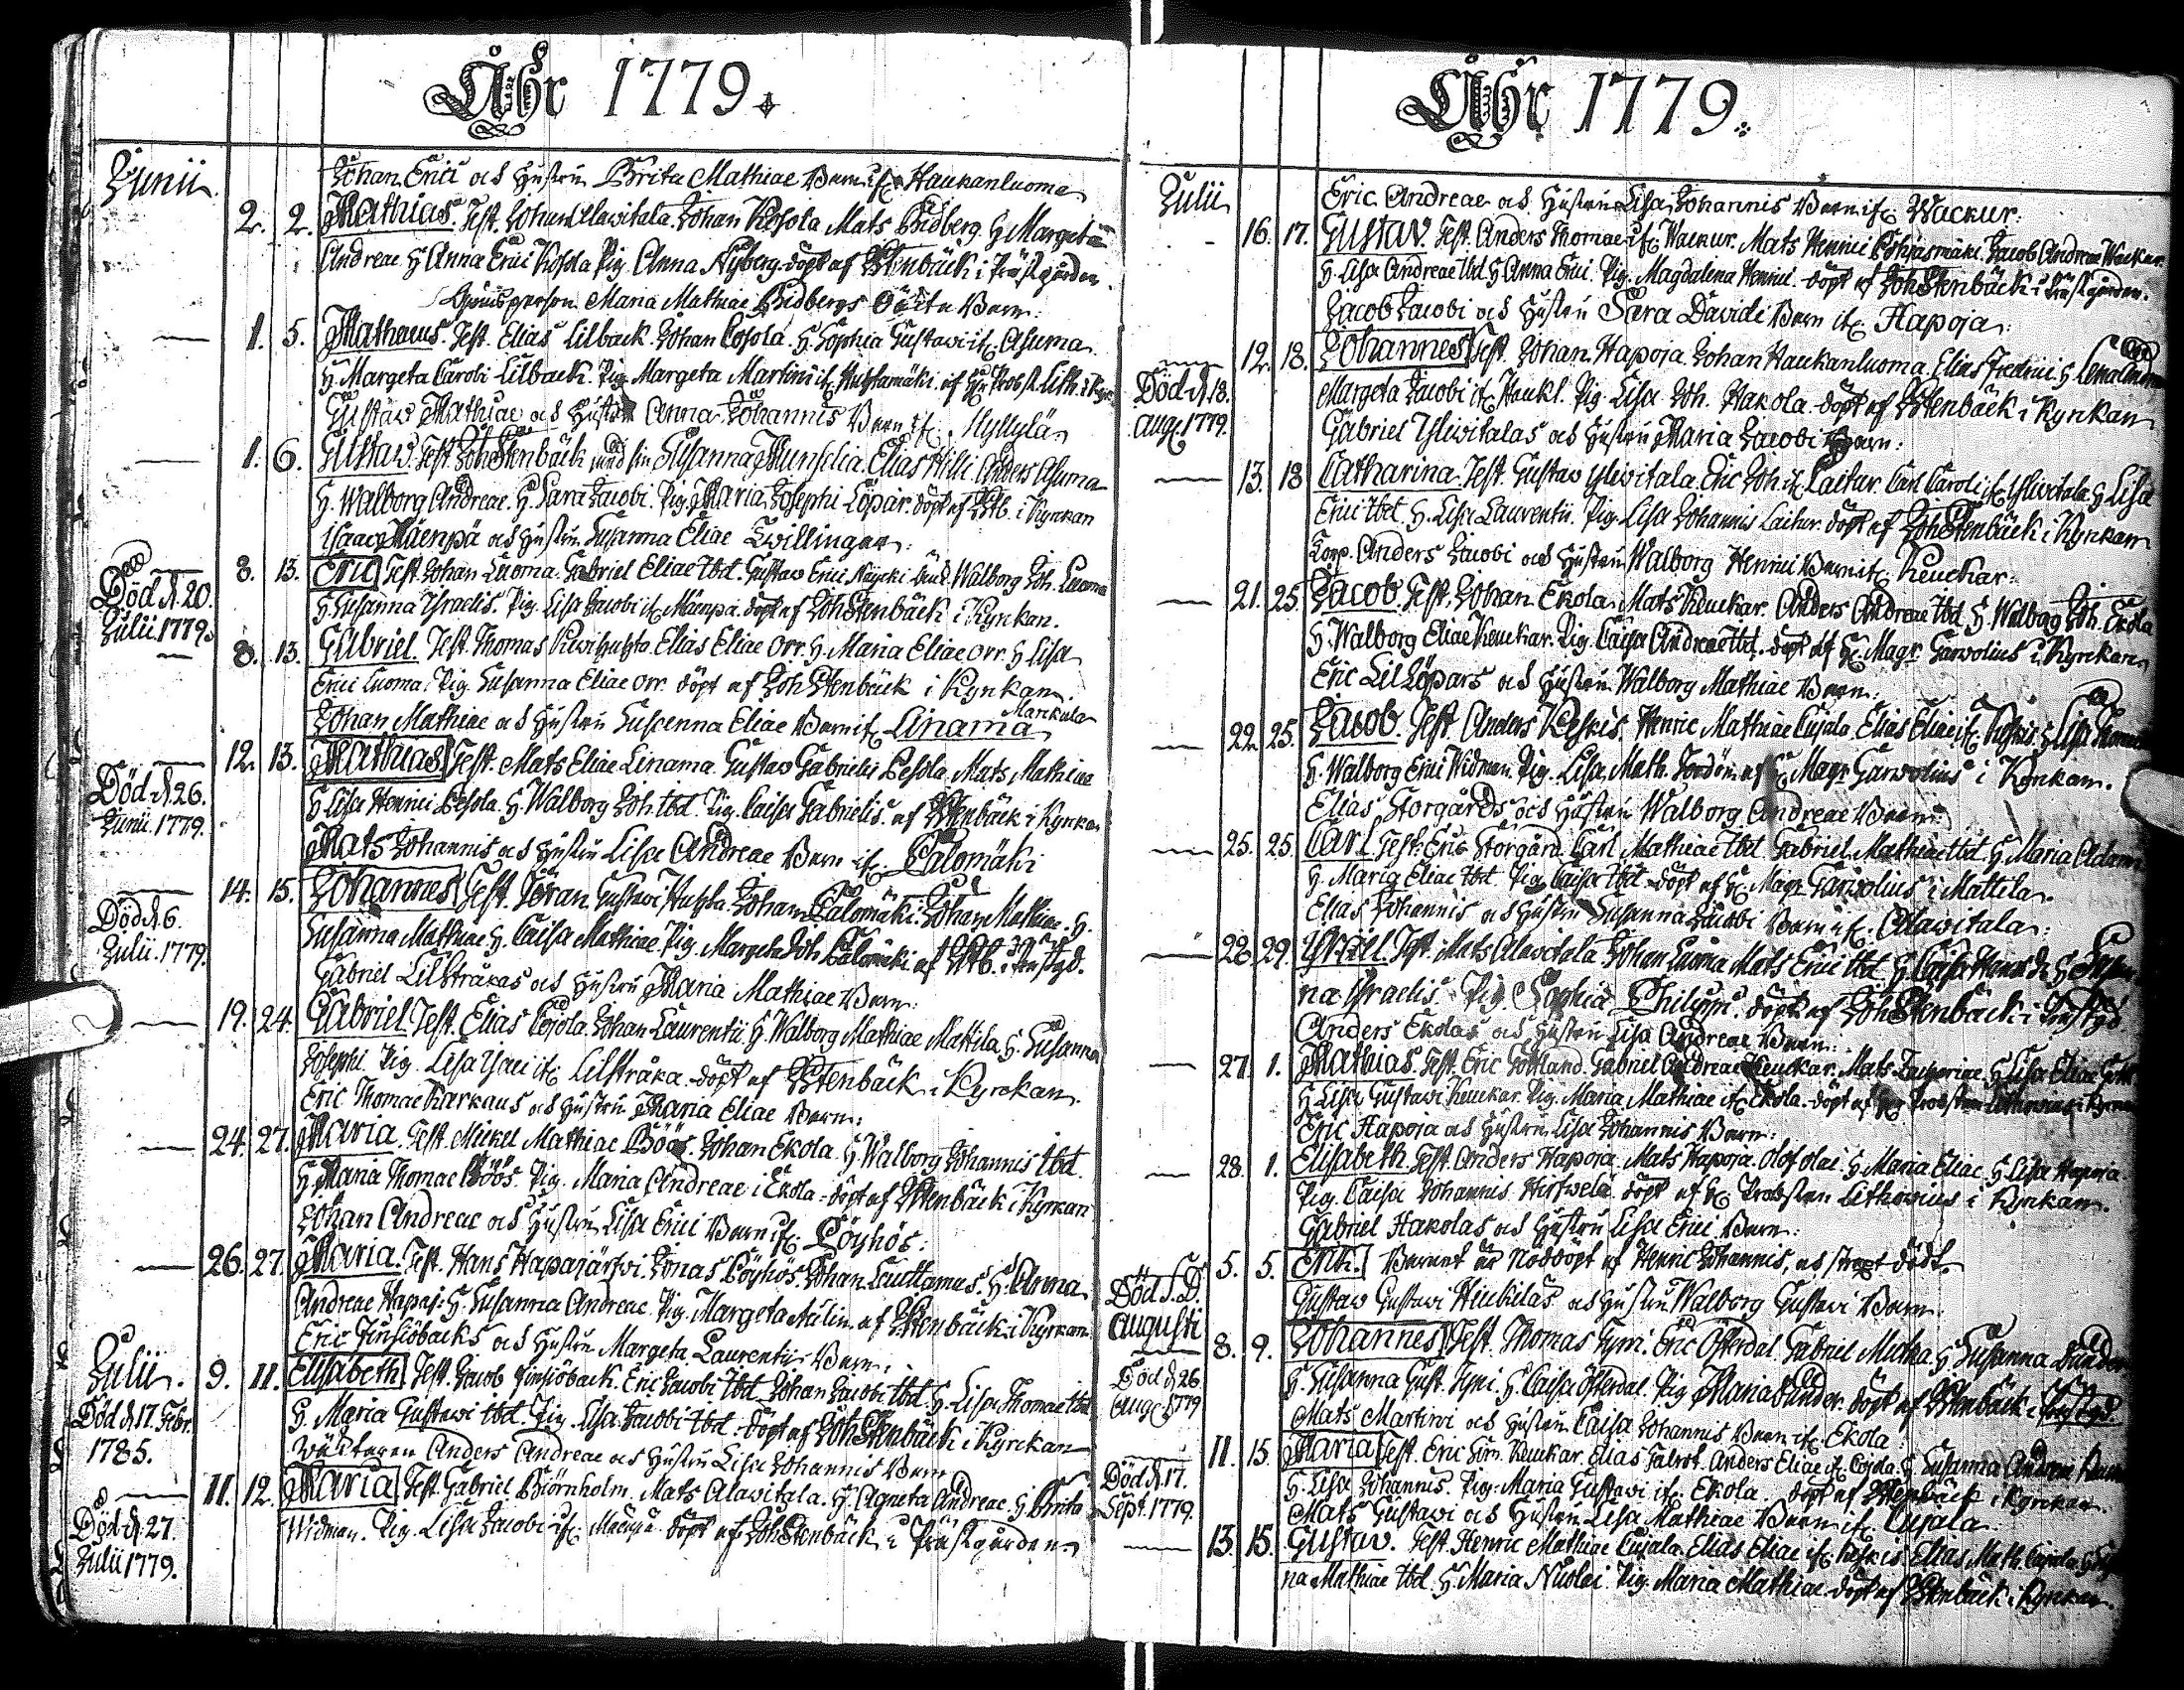 Åhr 1779.
Junii
Johan Erici och Hustru Brita Mathiae Barn if: Haukanluoma
2. 2. Mathias. Test. Johan Alawitala. Johan Pesola Mats Bidberg. H. Margeta
Andreae. H. Anna Erici Pesola Pig. Anna Nyberg. döpt af Stenbäck i Prästgården.
Maria Mathiae Bidbergs Oäckta Barn:
1. 5. Mathaeus. Test. Elias Lilback. Johan Pesola. H. Sophia Gustavi if: Asuma.
H. Margeta Caroli Lilback. Pig. Margeta Martini if:
Gustaw Mathiae och Hustru Anna Johannis Barn if: Nyllylä
1. 6. Gustaw. Test. Joh Stenbäck med sin Susanna Munselia. Elias Hilli Anders Asuma
H. Walborg Andreae. H. Sara Jacobi. Pig. Maria Josephi Löpar. döpt af Stb. i Kyrkan
Isaac Mäenpä och Hustru Susanna Eliae Twillingar:
Död d. 20. Julii 1779.
8. 13. Eric Test. Johan Luoma. Gabriel Eliae Ibd. Gustaw Erici Walborg Joh. Luoma
H. Susanna Israelis. Pig. Lisa Jacobi if: Mäenpä. döpt af Joh Stenbäck i Kyrkan.
8. 13. Gabriel. Test. Thomas Elias Eliae Orr. H. Maria Eliae Orr. H Lisa
Erici Luoma. Pig. Susanna Eliae Orr. döpt af Joh Stenbäck i Kyrkan.
Johan Mathiae och Hustru Susanna Eliae Barn if: Linama Marckula
12. 13. Mathias Test. Mats Eliae Linama. Gustaw Gabrielis Pesola. Mats Mathiae
Död d. 26. Junii. 1779.
H Lisa Henrici Pesola. H. Walborg Joh. Ibd. Pig. Caisa Gabrielis. af Stenbäck i Kyrkan
Mats Johannis och Hustru Lisa Andreae Barn if: Palomäki
14. 15. Johannes Test. Jöran Gustavi Johan Palomäki. Johan Mathiae. H.
Död d. 6. Julii. 1779.
Susanna Mathiae H. Caisa Mathiae. Pig. Margeta Joh. Palomäki af Stb. i Prästgd.
Gabriel Lilstråkas och Hustru Maria Mathiae Barn:
19. 24. Gabriel. Test. Elias Pesola. Johan Laurentii H. Walborg Mathiae Mattila. H. Susanna
Josephi. Pig. Lisa Isaci if: Lilstråka. döpt af Stenbäck i Kyrckan.
Eric Thomae Karkaus och Hustru Maria Eliae Barn:
24. 27. Maria. Test. Mickel Mathiae Böös. Johan Ekola. H. Walborg Johannis Ibd.
H. Maria Thomae Böös. Pig. Maria Andreae i Ekola. döpt af Stenbäck i Kyrkan
Johan Andreae och Hustru Lisa Erici Barn if: Löyhös:
26. 27. Maria. Test. Hans Hapajärwi. Jonas Löyhös. Johan H. Anna
Andreae Hapaj: H. Susanna Andreae. Pig. Margeta Aulin. af Stenbäck i Kyrkan
Eric Finsiöbacks och Hustru Margeta Laurentii Barn:
Julii. 9. 11. Elisabeth Test. Jacob Finsiöback. Eric Jacobi Ibd. Johan Jacobi Ibd. H. Lisa Thomae Ibd
Död d. 17. Febr. 1785.
H. Maria Gustavi Ibd. Pig. Lisa Jacobi Ibd. döpt af Joh Stenbäck i Kyrckan
Anders Andreae och Hustru Lisa Johannis Barn
11. 12. Maria Test. Gabriel Biörnholm. Mats Alawitala. H. Agneta Andreae. H. Brita
Död d. 27. Julii 1779.
Widman. Pig. Lisa Jacobi if: döpt af Joh Stenbäck i Prästgården
Åhr 1779.
Julii
Eric Andreae och Hustru Lisa Johannis Barn if: Wackur:
16. 17. Gustav. Test. Anders Thomae if: Wackur. Mats Henrici Jacob Andreae Wackur.
H. Lisa Andreae Ibd H. Anna Erici. Pig. Magdalena Henrici. döpt af Joh Stenbäck i Prästgården.
Jacob Jacobi och Hustru Sara Davidi Barn if: Hapoja:
12. 18. Johannes Test. Johan Hapoja. Johan Haukanluoma. Elias Fredrici. H.
Död d. 18. Aug. 1779.
Margeta Jacobi if: Haukl. Pig. Lisa Joh. Hakola. döpt af Stenbäck i Kyrkan
Gabriel Yliwitalas och Hustru Maria Jacobi Barn:
13. 18 Catharina. Test. Gustaw Yliwitala. Eric Joh. if: Laitur. Carl Caroli if: Yliwitala. H Lisa
Erici Ibd. H. Lisa Laurentii. Pig. Lisa Johannis Laitur. döpt af Joh Stenbäck i Kyrkan
Corp. Anders Jacobi och Hustru Walborg Henrici Barn if: Keuckar:
21. 25. Jacob. Test. Johan Ekola. Mats Keuckar. Anders Andreae Ibd. H. Walborg Joh. Ekola
H. Walborg Eliae Keuckar. Pig. Caisa Andreae Ibd. döpt af H: Magr. Garvolius i Kyrckan
Eric Lil Löpars och Hustru Walborg Mathiae Barn:
22. 25. Jacob. Test. Anders Keskis. Henric Mathiae Cujala. Elias Eliae if: Keskis H Lisa
H. Walborg Erici Widman. Pig. Lisa Math. af H: Magr. Garvolius i Kyrkan.
Elias Storgårds och Hustru Walborg Andreae Barn:
25. 25. Carl Test. Eric Storgård. Carl Mathiae Ibd. Gabriel Mathiae Ibd. H. Maria
H. Maria Eliae Ibd. Pig. Caisa Ibd. döpt af H: Magr Garvolius i Mattila.
Elias Johannis och Hustru Susanna Jacobi Barn if: Alawitala:
28. 29. Israel. Test. Mats Alawitala. Johan Luoma Mats Erici Ibd. H. Caisa
na Israelis. Pig. Sophia Philippi. döpt af Joh Stenbäck i Prästgd
Anders Ekolas och Hustru Lisa Andreae Barn:
27. 1. Mathias. Test. Eric Gottland. Gabriel Andreae Keuckar. Mats Zachariae. H Lisa Eliae
H Lisa Gustavi Keuckar. Pig. Maria Mathiae if: Ekola. döpt af H: Probsten Lithovius i
Eric Hapoja och Hustru Lisa Johannis Barn:
28. 1. Elisabeth. Test. Anders Hapoja. Mats Hapoja. Olof Olai. H Maria Eliae. H Lisa Hapoja.
Pig. Caisa Johannis Hirswelä. döpt af H: Probsten Lithovius i Kyrkan.
Gabriel Hakolas och Hustru Lisa Erici Barn:
5. 5. Erik. Barnet är Nöddöpt af Henric Johannis, och straxt dödt
Död S. D. Augusti
Gustaw Gustavi Hiukilas och Hustru Walborg Gustavi Barn:
8. 9. Johannes Test. Thomas Fyri. Eric Österdal. Gabriel Micka. H Susanna
Död d. 26 Aug. 1779
H. Susanna Gust. Fyri. H. Caisa Österdal. Pig Maria Sunder. döpt af Stenbäck i Prästgd.
Mats Martini och Hustru Caisa Johannis Barn if: Ekola
11. 15. Maria Test. Eric Sim. Keuckar. Elias Anders Eliae if: H Susanna
Död d. 17. Sept. 1779.
H. Lisa Johannis. Pig. Maria Gustavi if: Ekola. döpt af Stenbäck i Kyrckan.
Mats Gustavi och Hustru Lisa Mathiae Barn if: Cujala:
13. 15. Gustav. Test. Henric Mathiae Cujala. Elias Eliae if: Keskis. Elias Math. Cujala.
na Mathiae Ibd. H. Maria Nicolai. Pig. Maria Mathiae. döpt af Stenbäck i Kyrckan.